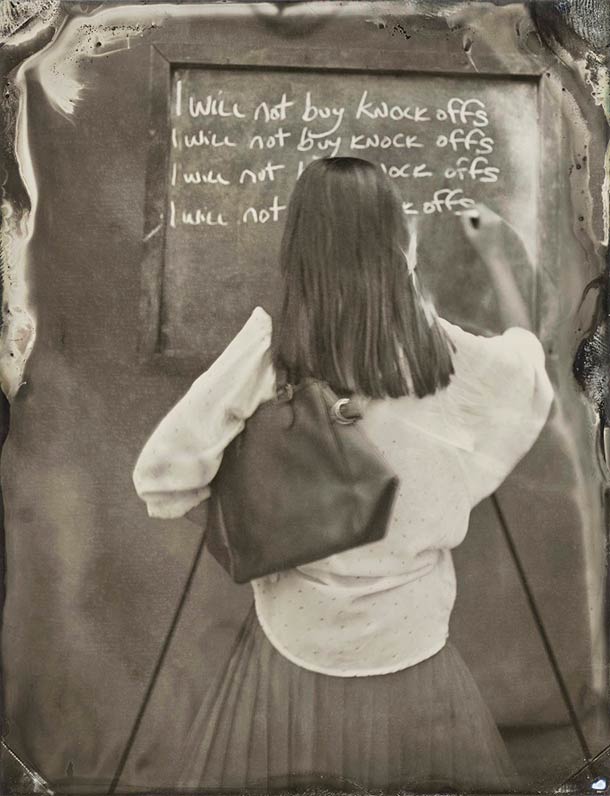 I will not buy knock offs
I will not buy knock offs
I will not knock offs
I will not offs